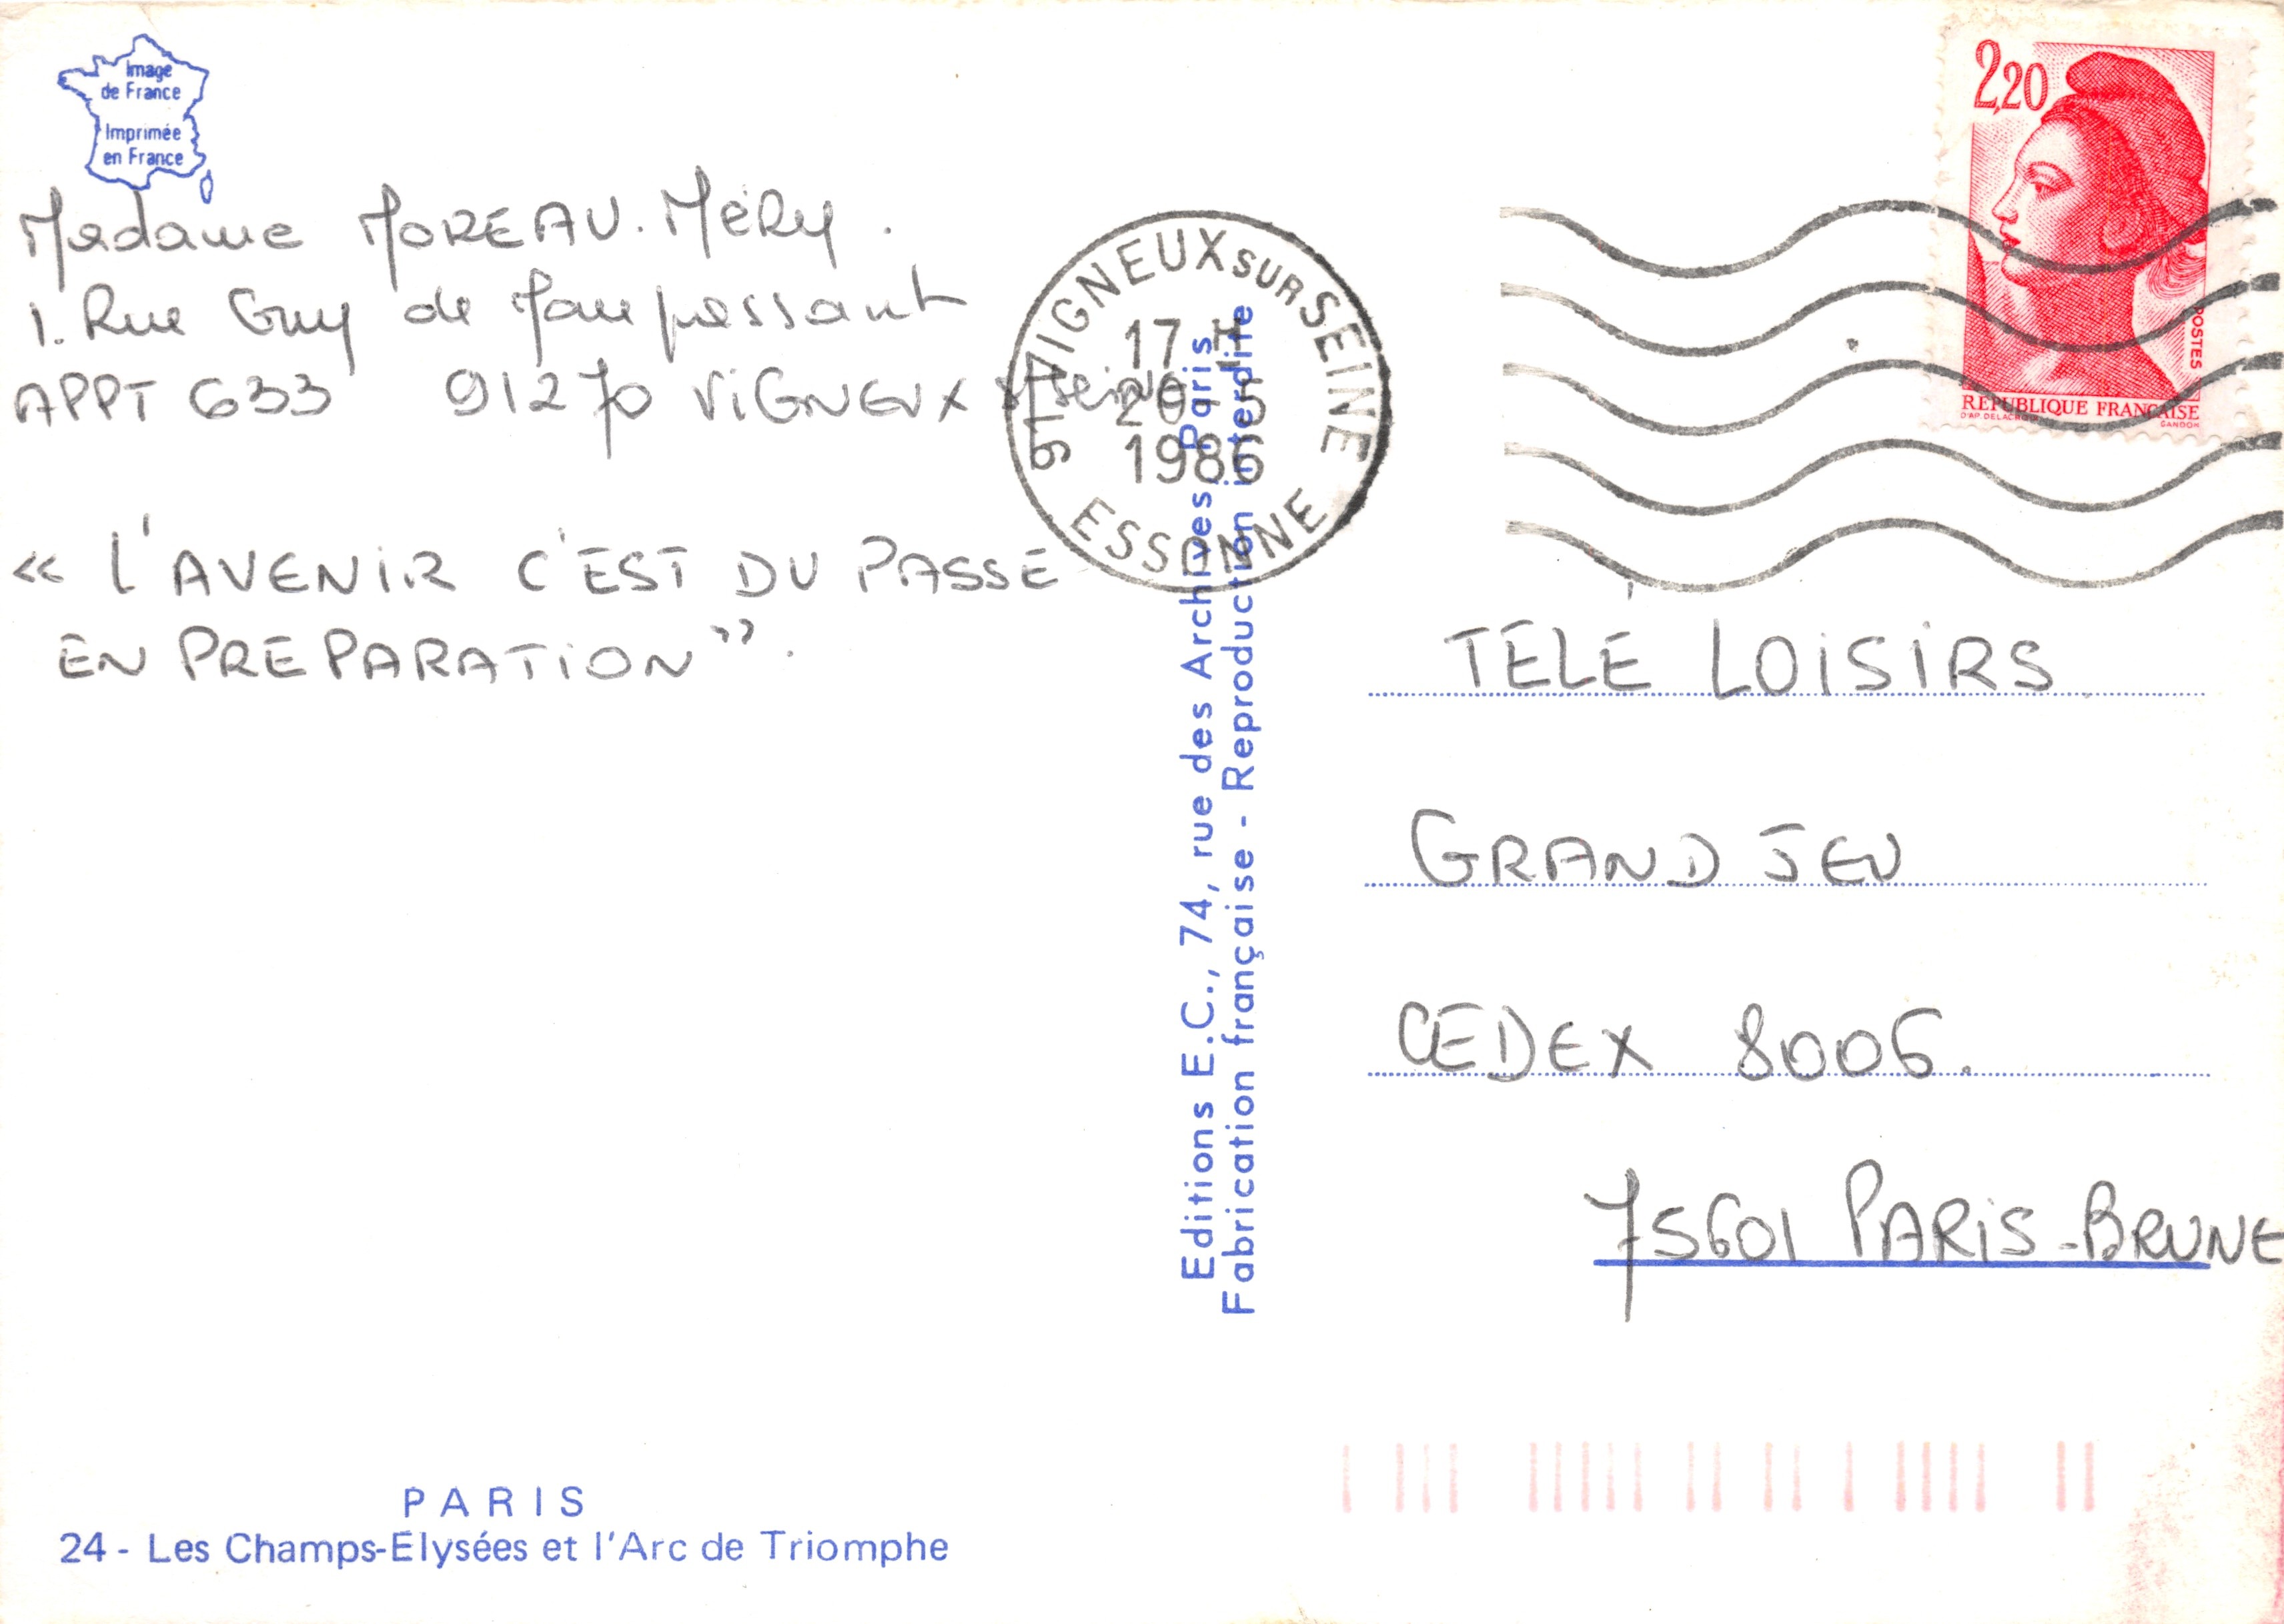 Image
de France
Imprimée
en France
Madame MOREAU. MÉRY.
1. Rue Guy de Maupassant
APPT 633 91270 ViGNEUX s/Seine
« L'AVENIR C'EST DU PASSE
EN PREPARATION".
PARIS
24 - Les Champs-Élysées et l'Arc de Triomphe
Editions E.C., 74, rue des Archives, Paris
Fabrication française - Reproduction interdite
91 VIGNEUX SUR SEINE
17 H
20-5
1986
ESSONNE
2,20
POSTES
REPUBLIQUE FRANÇAISE
D'AP. DELACROIX
GANDON
TÉLÉ LOISIRS
GRAND JEU
CEDEX 8006.
75601 PARIS-BRUNE